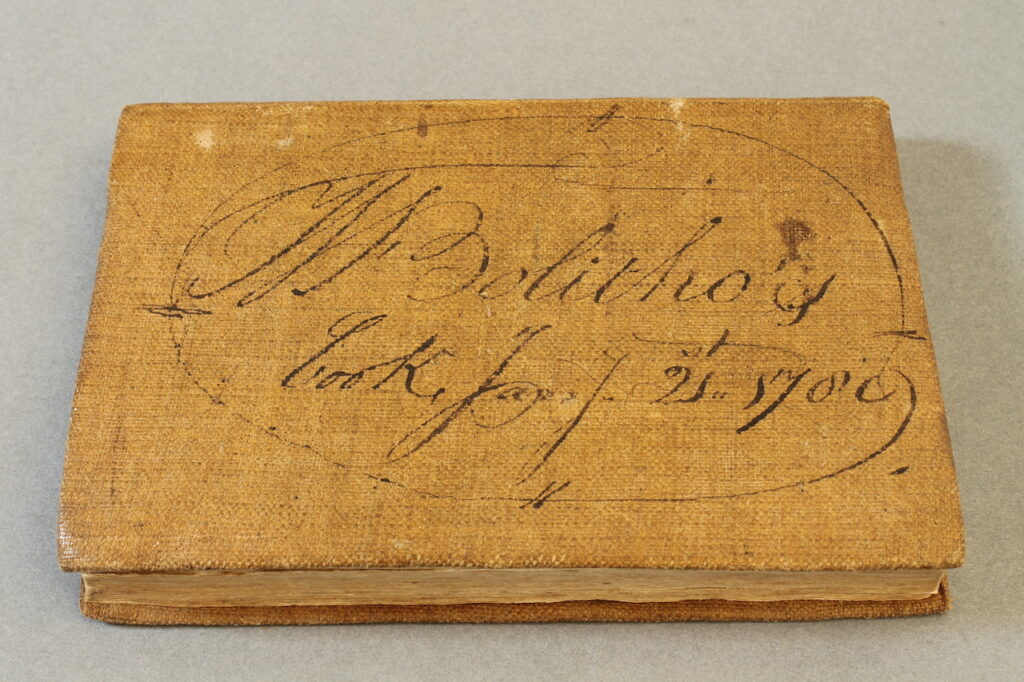 W Bolitho's
book, Jany 21st 1786